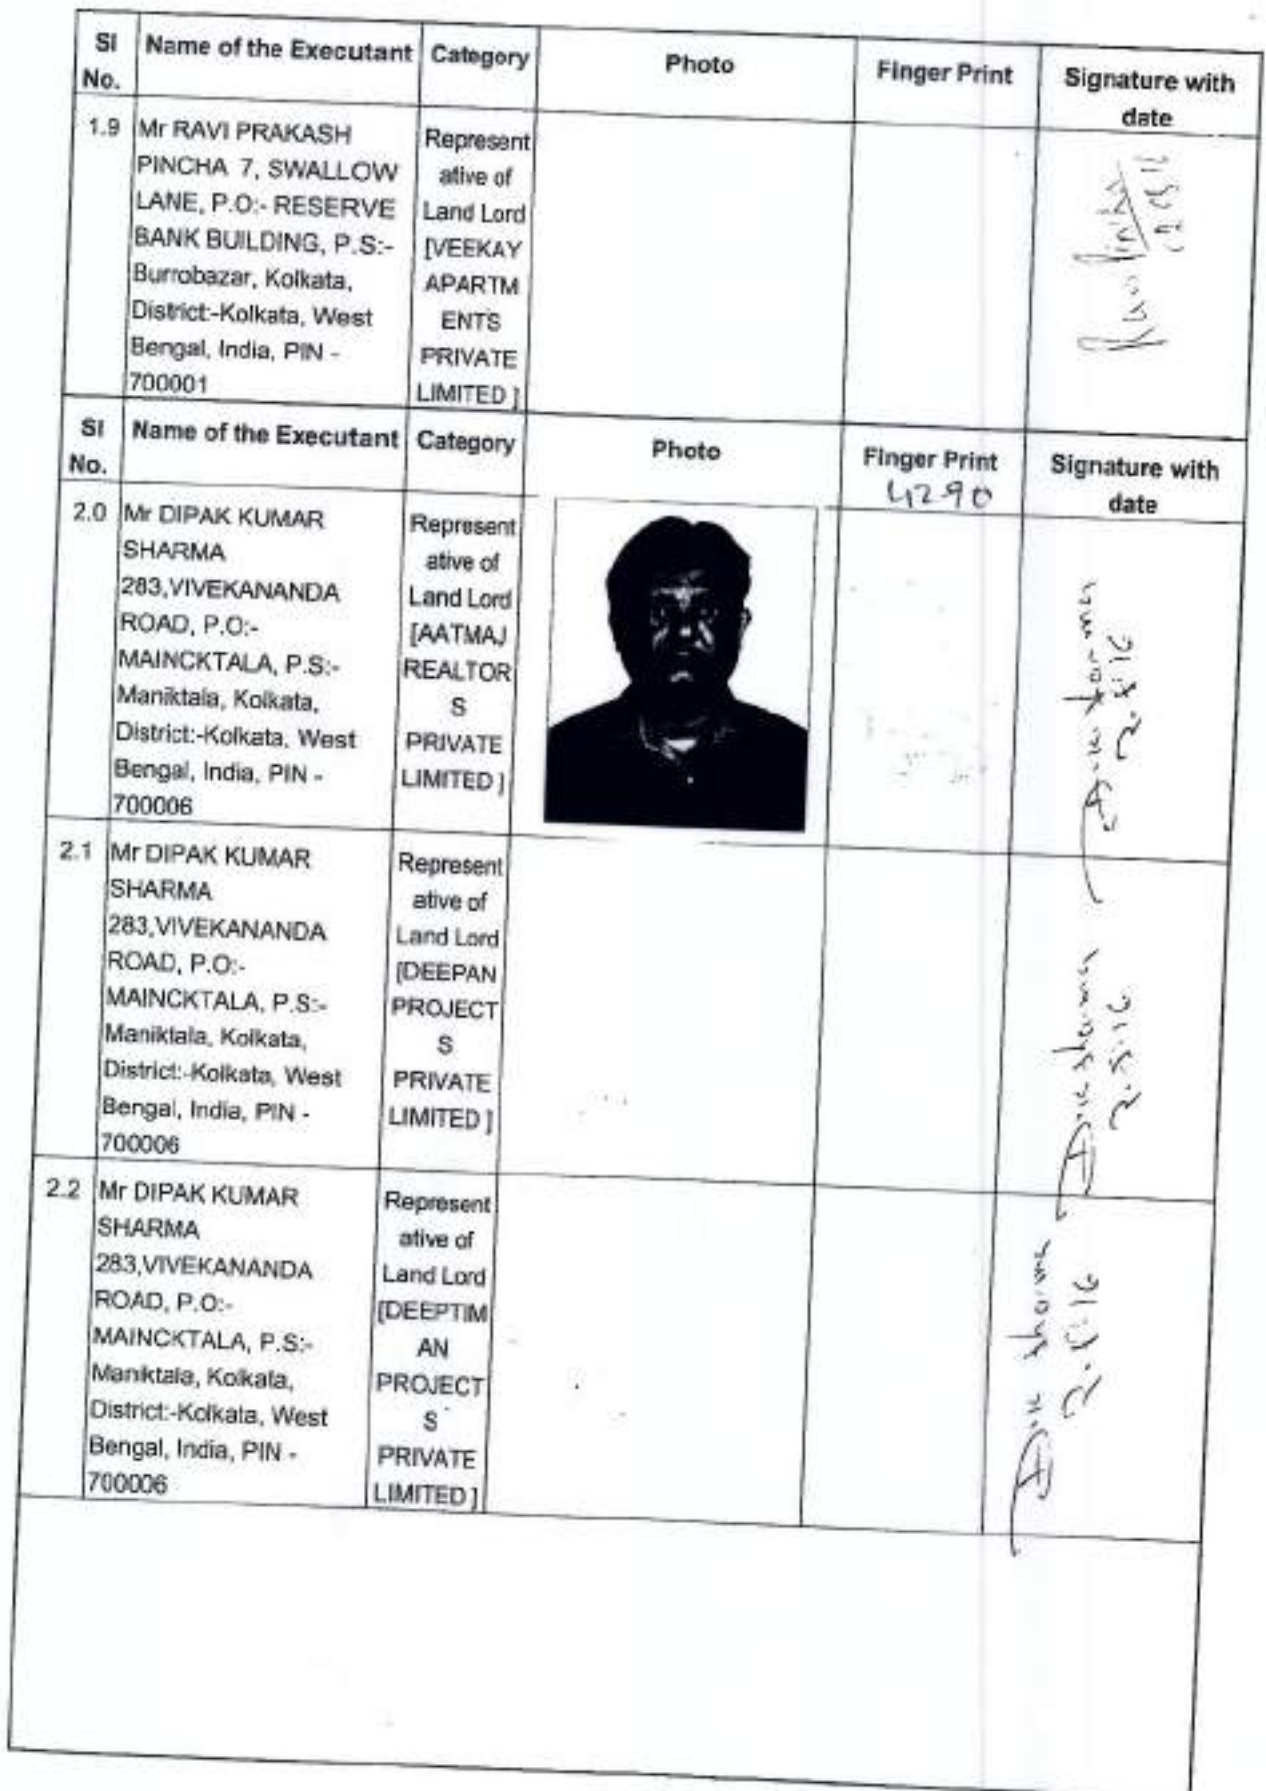 Sl No. Name of the Executant Category Photo Finger Print Signature with date
1.9 Mr RAVI PRAKASH
PINCHA 7, SWALLOW
LANE, P.O:- RESERVE
BANK BUILDING, P.S:-
Burrobazar, Kolkata,
District:-Kolkata, West
Bengal, India, PIN -
700001
Represent
ative of
Land Lord
[VEEKAY
APARTM
ENTS
PRIVATE
LIMITED ]
Sl No. Name of the Executant Category Photo Finger Print Signature with date
4290
2.0 Mr DIPAK KUMAR
SHARMA
283,VIVEKANANDA
ROAD, P.O:-
MAINCKTALA, P.S:-
Maniktala, Kolkata,
District:-Kolkata, West
Bengal, India, PIN -
700006
Represent
ative of
Land Lord
[AATMAJ
REALTOR
S
PRIVATE
LIMITED ]
2.8.16
2.1 Mr DIPAK KUMAR
SHARMA
283,VIVEKANANDA
ROAD, P.O:-
MAINCKTALA, P.S:-
Maniktala, Kolkata,
District:-Kolkata, West
Bengal, India, PIN -
700006
Represent
ative of
Land Lord
[DEEPAN
PROJECT
S
PRIVATE
LIMITED ]
sharma
2.8.16
2.2 Mr DIPAK KUMAR
SHARMA
283,VIVEKANANDA
ROAD, P.O:-
MAINCKTALA, P.S:-
Maniktala, Kolkata,
District:-Kolkata, West
Bengal, India, PIN -
700006
Represent
ative of
Land Lord
[DEEPTIM
AN
PROJECT
S
PRIVATE
LIMITED ]
sharma
2.8.16